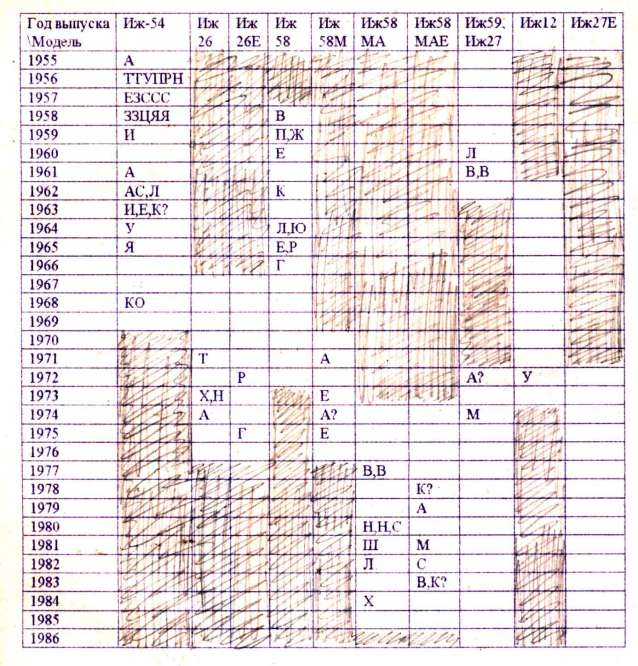 Год выпуска Иж-54 Иж Иж Иж Иж Иж58 Иж58 Иж59, Иж12 Иж27Е
\Модель 26 26Е 58 58М МА МАЕ Иж27
1955 А
1956 ТТУПРН
1957 ЕЗССС
1958 ЗЗЦЯЯ В
1959 И П,Ж
1960 Е Л
1961 А В,В
1962 АС,Л К
1963 И,Е,К?
1964 У Л,Ю
1965 Я Е,Р
1966 Г
1967
1968 КО
1969
1970
1971 Т А
1972 Р А? У
1973 Х,Н Е
1974 А А? М
1975 Г Е
1976
1977 В,В
1978 К?
1979 А
1980 Н,Н,С
1981 Ш М
1982 Л С
1983 В,К?
1984 Х
1985
1986